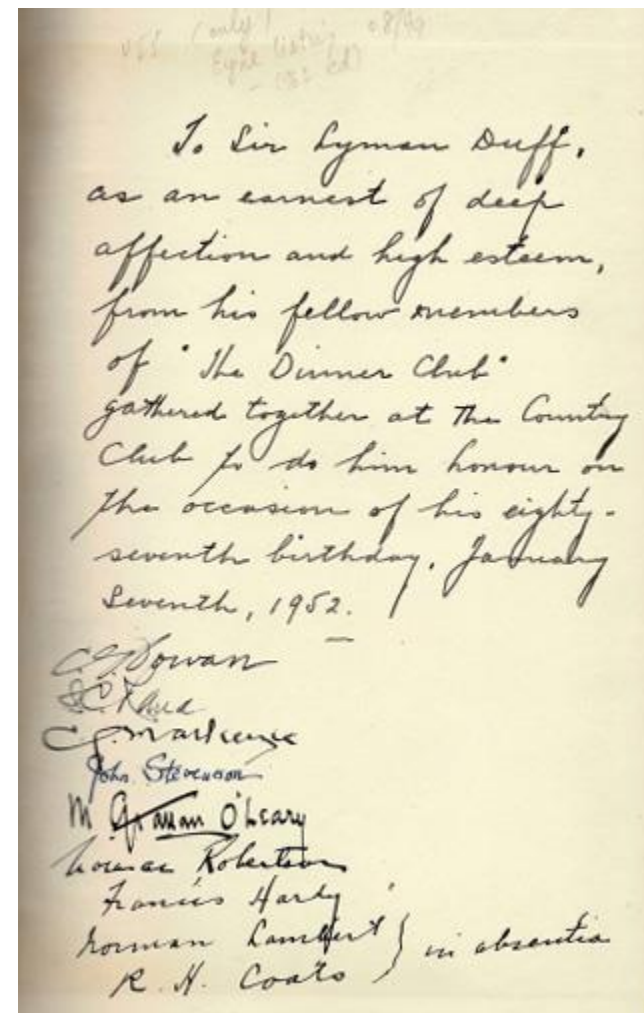 (only)
To Sir Lyman Duff,
as an earnest of deep
affection and high esteem,
from his fellow members
of "The Dinner Club"
gathered together at The Country
Club to do him honour on
the occasion of his eighty-
seventh birthday, January
Seventh, 1952.
John Stevenson
M Grattan O'Leary
Norman Robertson
Francis Hardy
Norman Lambert } in absentia
R. H. Coats